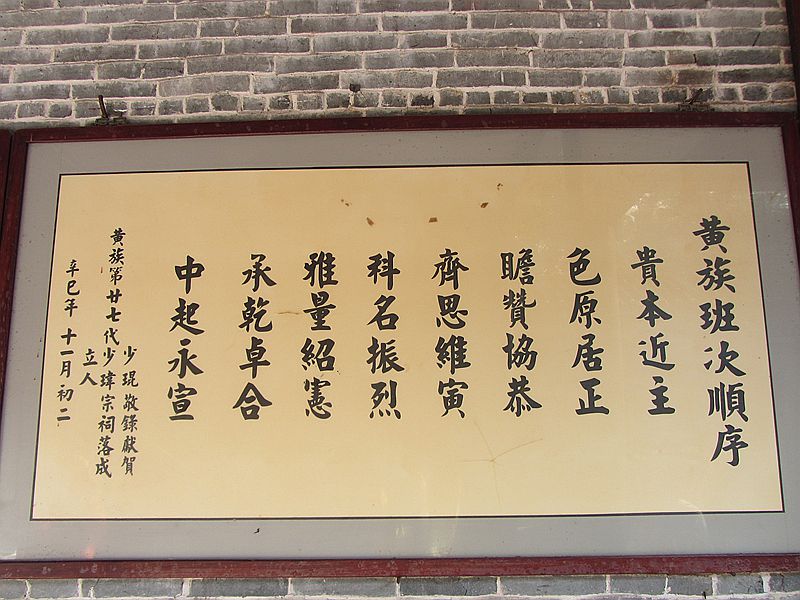 黃族班次順序
貴本近主
色原居正
瞻贊協恭
齊思維寅
科名振烈
雅量紹憲
承乾卓合
中起永宣
黃族第廿七代少琨 少瑋 立人 敬錄獻賀宗祠落成
辛巳年 十一月初二